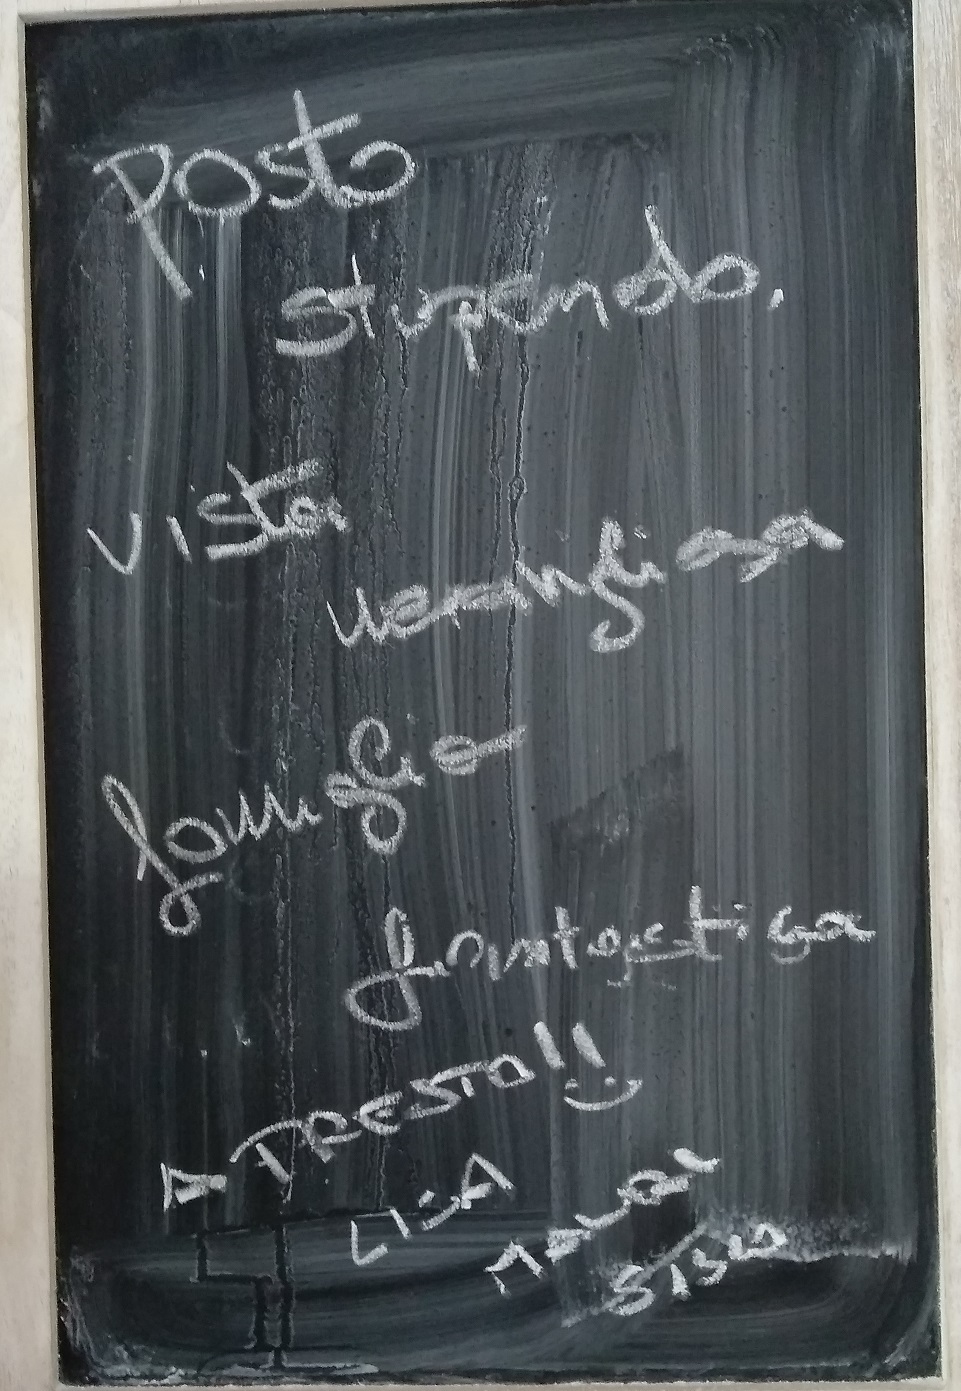 Posto
stupendo,
vista
meravigliosa
famiglia
fantastica
A PRESTO!!
LISA